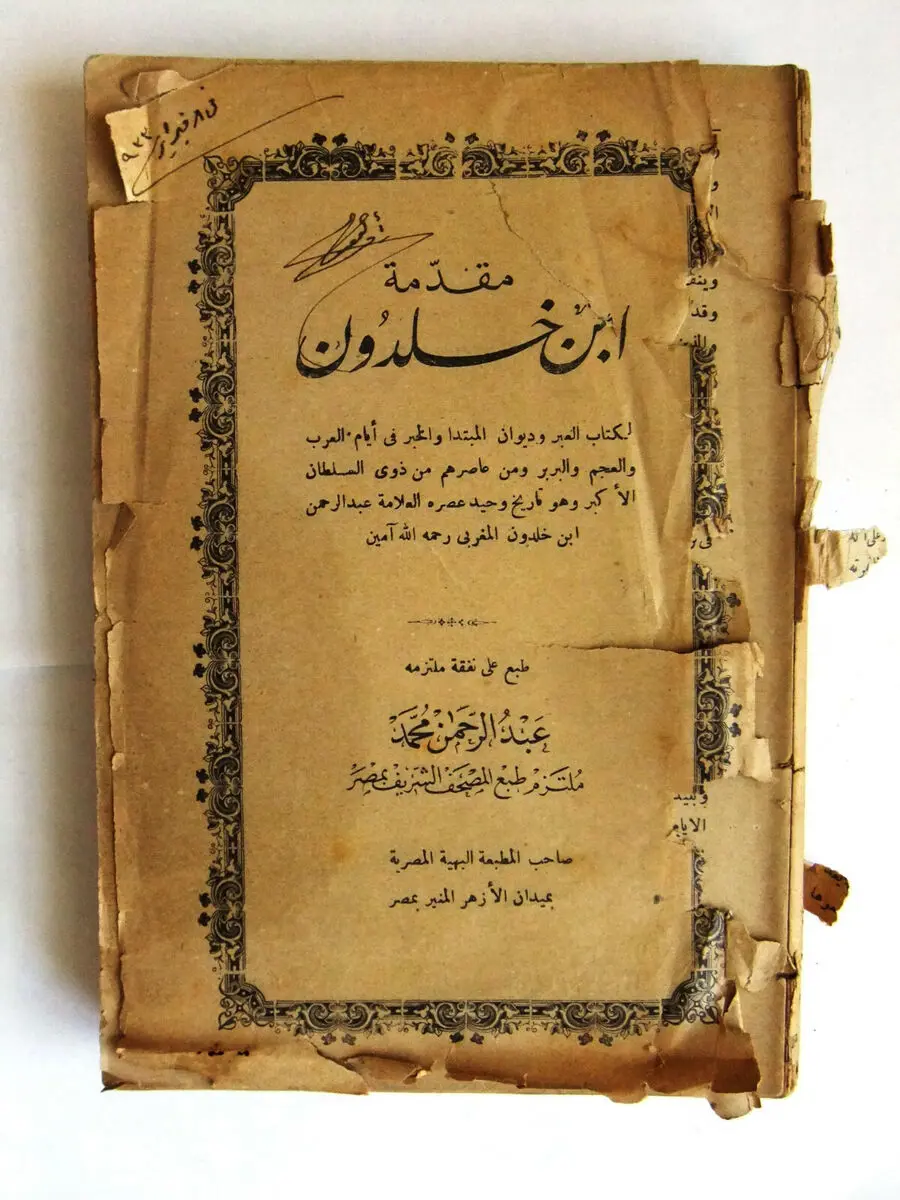 فى ٨ فبراير ٩٣٣
مقدّمة
ابن خلدون
لكتاب العبر وديوان المبتدا والخبر فى أيام العرب
والعجم والبربر ومن عاصرهم من ذوى السلطان
الأكبر وهو تاريخ وحيد عصره العلامة عبدالرحمن
ابن خلدون المغربى رحمه الله آمين
طبع على نفقة ملتزمه
عَبْدُ الرَّحْمٰنْ مُحَمَّدْ
مُلتَزم طبع المصْحَفْ الشَّرْيفْ بمصْرَ
صاحب المطبعة البهية المصرية
بميدان الأزهر المنير بمصر
وينف
وقد
فى
وبيد
الايام